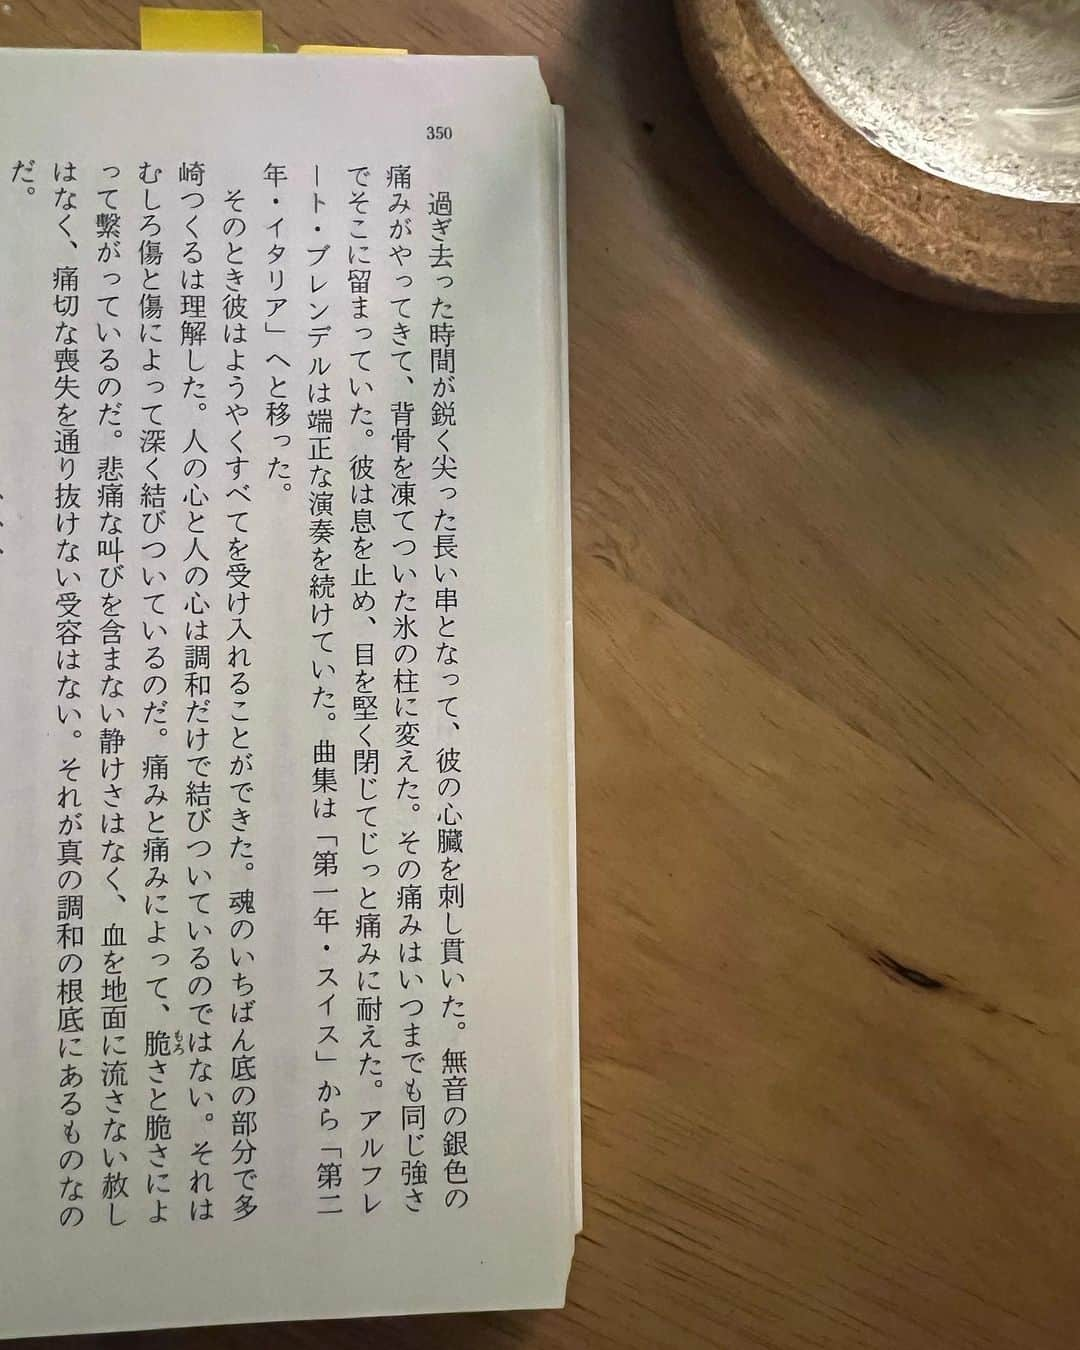 350
過ぎ去った時間が鋭く尖った長い串となって、彼の心臓を刺し貫いた。無音の銀色の
痛みがやってきて、背骨を凍てついた氷の柱に変えた。その痛みはいつまでも同じ強さ
でそこに留まっていた。彼は息を止め、目を堅く閉じてじっと痛みに耐えた。アルフレ
ート・ブレンデルは端正な演奏を続けていた。曲集は「第一年・スイス」から「第二
年・イタリア」へと移った。
そのとき彼はようやくすべてを受け入れることができた。魂のいちばん底の部分で多
崎つくるは理解した。人の心と人の心は調和だけで結びついているのではない。それは
むしろ傷と傷によって深く結びついているのだ。痛みと痛みによって、脆さと脆さによ
もろ
って繫がっているのだ。悲痛な叫びを含まない静けさはなく、血を地面に流さない赦し
はなく、痛切な喪失を通り抜けない受容はない。それが真の調和の根底にあるものなの
だ。